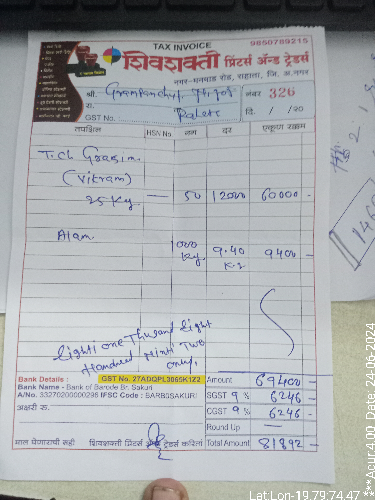 TAX INVOICE
9850789215
शिवशक्ती प्रिंटर्स अॅन्ड ट्रेडर्स
नगर-मनमाड रोड, राहाता, जि. अ.नगर
श्री. नंबर 326
रा. दि. / /20
GST No.:
तपशिल HSN No. नग दर एकुण रक्कम
T.Ch Grasim
(Vikram)
25 Kg. 50 1200 60000 -
Alam 1000 Kg. 9.40 K.g 9400 -
Eighti one Thusand Eight
Handred Ninti Two
only.
Bank Details : GST No. 27ADQPL3065K1Z2
Bank Name:- Bank of Barode Br. Sakuri
A/No. 33270200000298 IFSC Code : BARB0SAKURI
अक्षरी रु.
Amount 69400 -
SGST 9 % 6246 -
CGST 9 % 6246 -
Round Up -
Total Amount 81892 -
माल घेणाराची सही शिवशक्ती प्रिंटर्स अॅन्ड ट्रेडर्स करिता
Lat Lon-19.79,74.47 ***Acur:4.00 Date: 24-06-2024